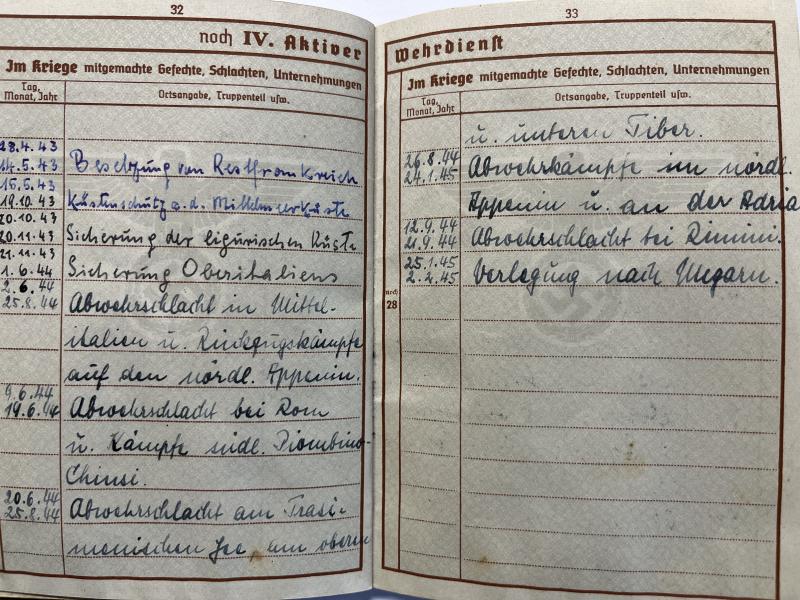 32
noch IV. Aktiver
Im Kriege mitgemachte Gefechte, Schlachten, Unternehmungen
Tag, Monat, Jahr
Ortsangabe, Truppenteil usw.
28.4.43
14.5.43 Besetzung von Restfrankreich
15.5.43
19.10.43 Küstenschutz a.d. Mittelmeerküste
20.10.43
20.11.43 Sicherung der ligurischen Küste
21.11.43
1.6.44 Sicherung Oberitaliens
2.6.44
25.8.44 Abwehrschlacht in Mittel-
italien u. Rückzugskämpfe
auf den nördl. Appenin.
9.6.44
19.6.44 Abwehrschlacht bei Rom
u. Kämpfe südl. Piombino-
Chiusi.
20.6.44
25.8.44 Abwehrschlacht am Trasi-
menischen See, am oberen
33
Wehrdienst
Im Kriege mitgemachte Gefechte, Schlachten, Unternehmungen
Tag, Monat, Jahr
Ortsangabe, Truppenteil usw.
u. unteren Tiber.
26.8.44
24.1.45 Abwehrkämpfe im nördl.
Appenin u. an der Adria
12.9.44
21.9.44 Abwehrschlacht bei Rimini.
25.1.45
2.2.45 Verlegung nach Ungarn.
noch
28